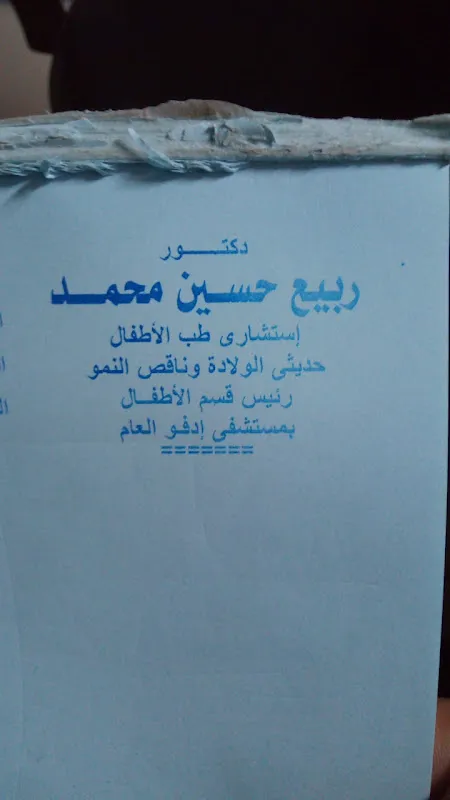 دكتــــور
ربيع حسين محمد
إستشارى طب الأطفال
حديثى الولادة وناقص النمو
رئيس قسم الأطفال
بمستشفى إدفو العام
=======